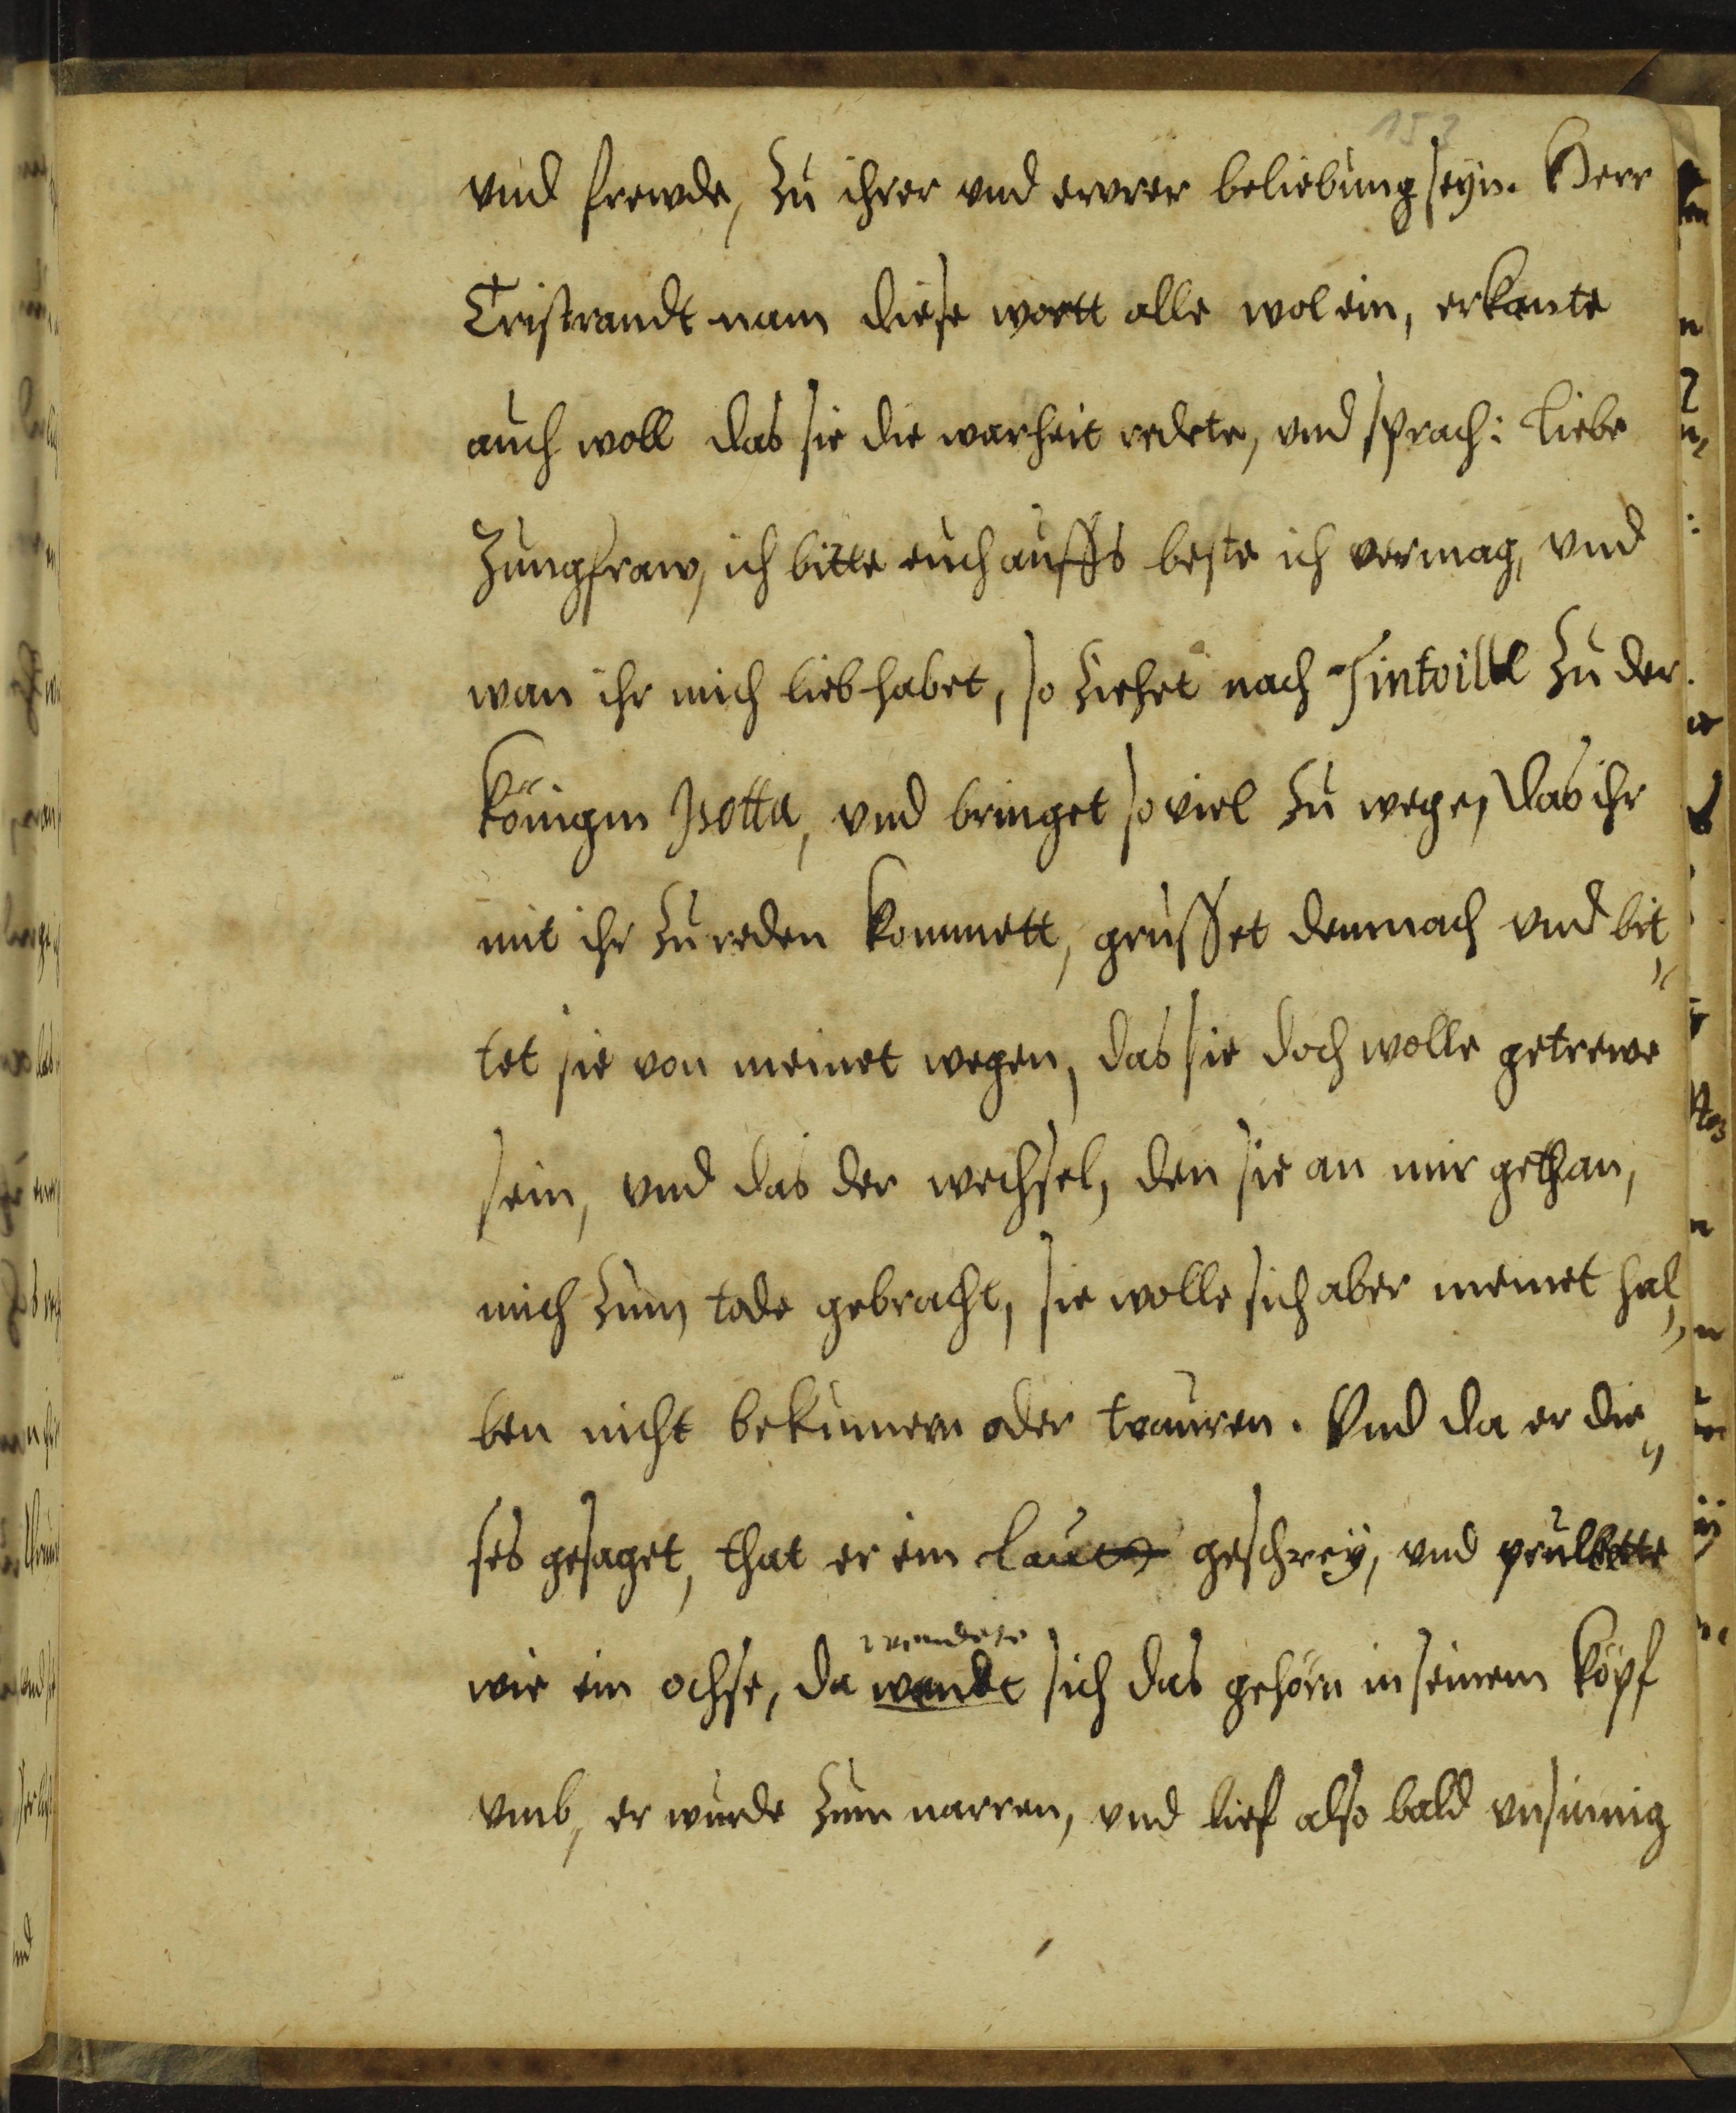 153
vnd frewde, zu ihrer vnd ewrer beliebung seyn. Herr
Tristrandt nam diese wortt alle wol ein, erkante
auch woll das sie die warheit redete, vnd sprach: Liebe
Jungfraw, ich bitte euch auffs beste ich vermag, vnd
wan ihr mich lieb habet, so ziehet nach Tintoille zu der
Königin Isotta, vnd bringet so viel zu wege, das ihr
mit ihr zu reden kommett, grüsset demnach vnd bit„
tet sie von meinet wegen, das sie doch wolle getrewe
sein, vnd das der wechsel, den sie an mir gethan,
mich zum tode gebracht, sie wolle sich aber meinet hal„
ben nicht bekümern oder trauren. Vnd da er die„
ses gesaget, that er ein laut geschrey, vnd prüllette
wendete
wie ein ochse, da wandt sich das gehörn in seinem kopf
vmb, er wurde zum narren, vnd lief also bald vnsinnig